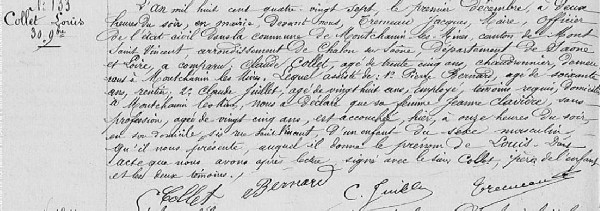 n.° 133
Collet Louis
30. 9bre
L'An mil huit cent quatre-vingt sept, le premier Décembre, à Deux
heures du soir, en mairie Devant Nous, Tremeaux Jacques, Maire, Officier
de l'état civil Dans la commune de Montchanin les Mines, canton de Mont
Saint Vincent, arrondissement de Chalon sur Saône, Département de Saône
et Loire, a comparu, Claude Collet, âgé de trente cinq ans, chaudronnier, demeu
rant à Montchanin les Mines. Lequel assisté de: 1.° Pierre Bernard, âgé de soixante
ans, rentier, 2.° Claude Juillet, âgé de vingt huit ans, Employé, témoins requis, domiciliés
à Montchanin les Mines, nous a Déclaré que sa femme Jeanne Clavière, sans
profession, âgée de vingt cinq ans, est accouchée, hier, à onze heures du soir,
en son domicile sis rue Saint Vincent, D'un enfant du sexe masculin
qu'il nous présente, auquel il donne le prénom de Louis. Dont
acte que nous avons après lecture, signé avec le sieur Collet, père de l'enfant
et les deux témoins.
Collet Bernard C. Juillet Tremeaux